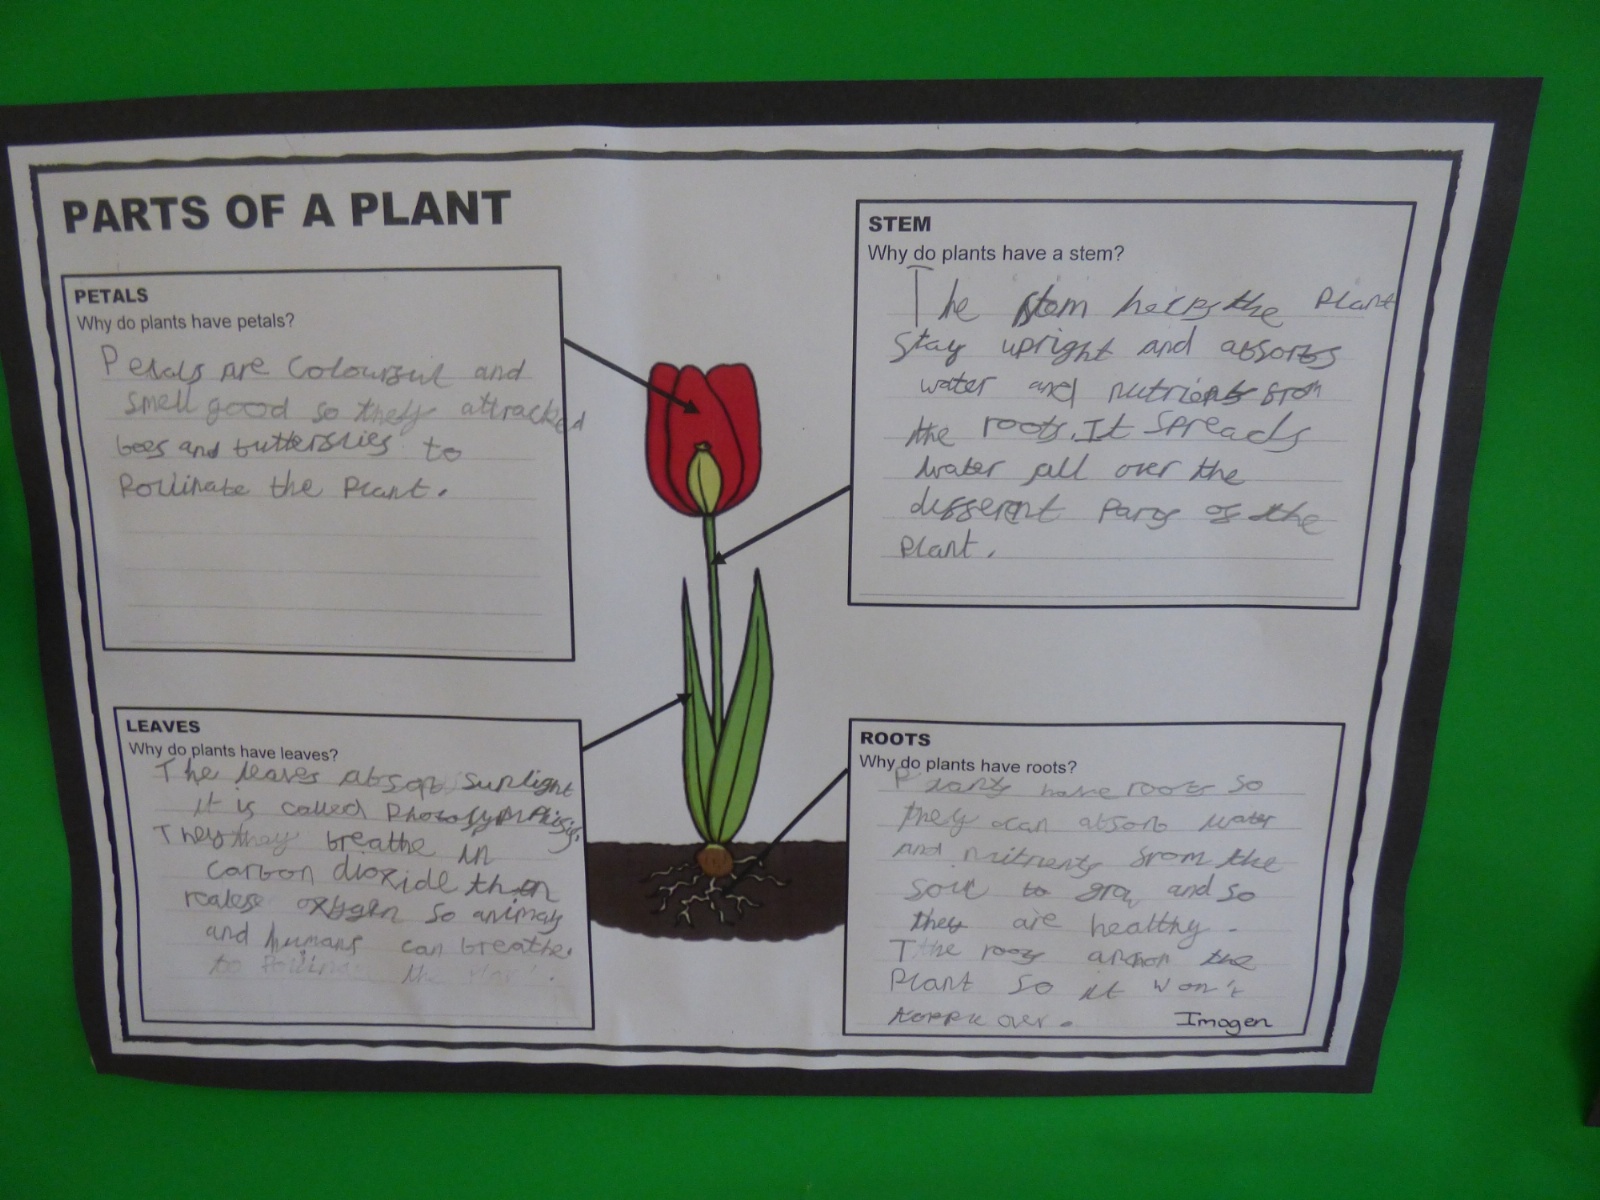 PARTS OF A PLANT
PETALS
Why do plants have petals?
Petals are colourful and
smell good so they attracked
bees and butterflies to
Pollinate the Plant.
STEM
Why do plants have a stem?
The stem helps the Plant
Stay upright and absorbs
water and nutrients from
the roots. It Spreads
water all over the
different Parts of the
Plant.
LEAVES
Why do plants have leaves?
The leaves absorb Sunlight
it is called Photosynthisis.
They they breathe in
carbon dioxide then
realese oxygen so animals
and humans can breathe.
to the
ROOTS
Why do plants have roots?
Plants have roots so
they can absorb water
and nutrients from the
soil to grow and so
they are healthy.
The roots anchor the
Plant so it won't
topple over.
Imogen